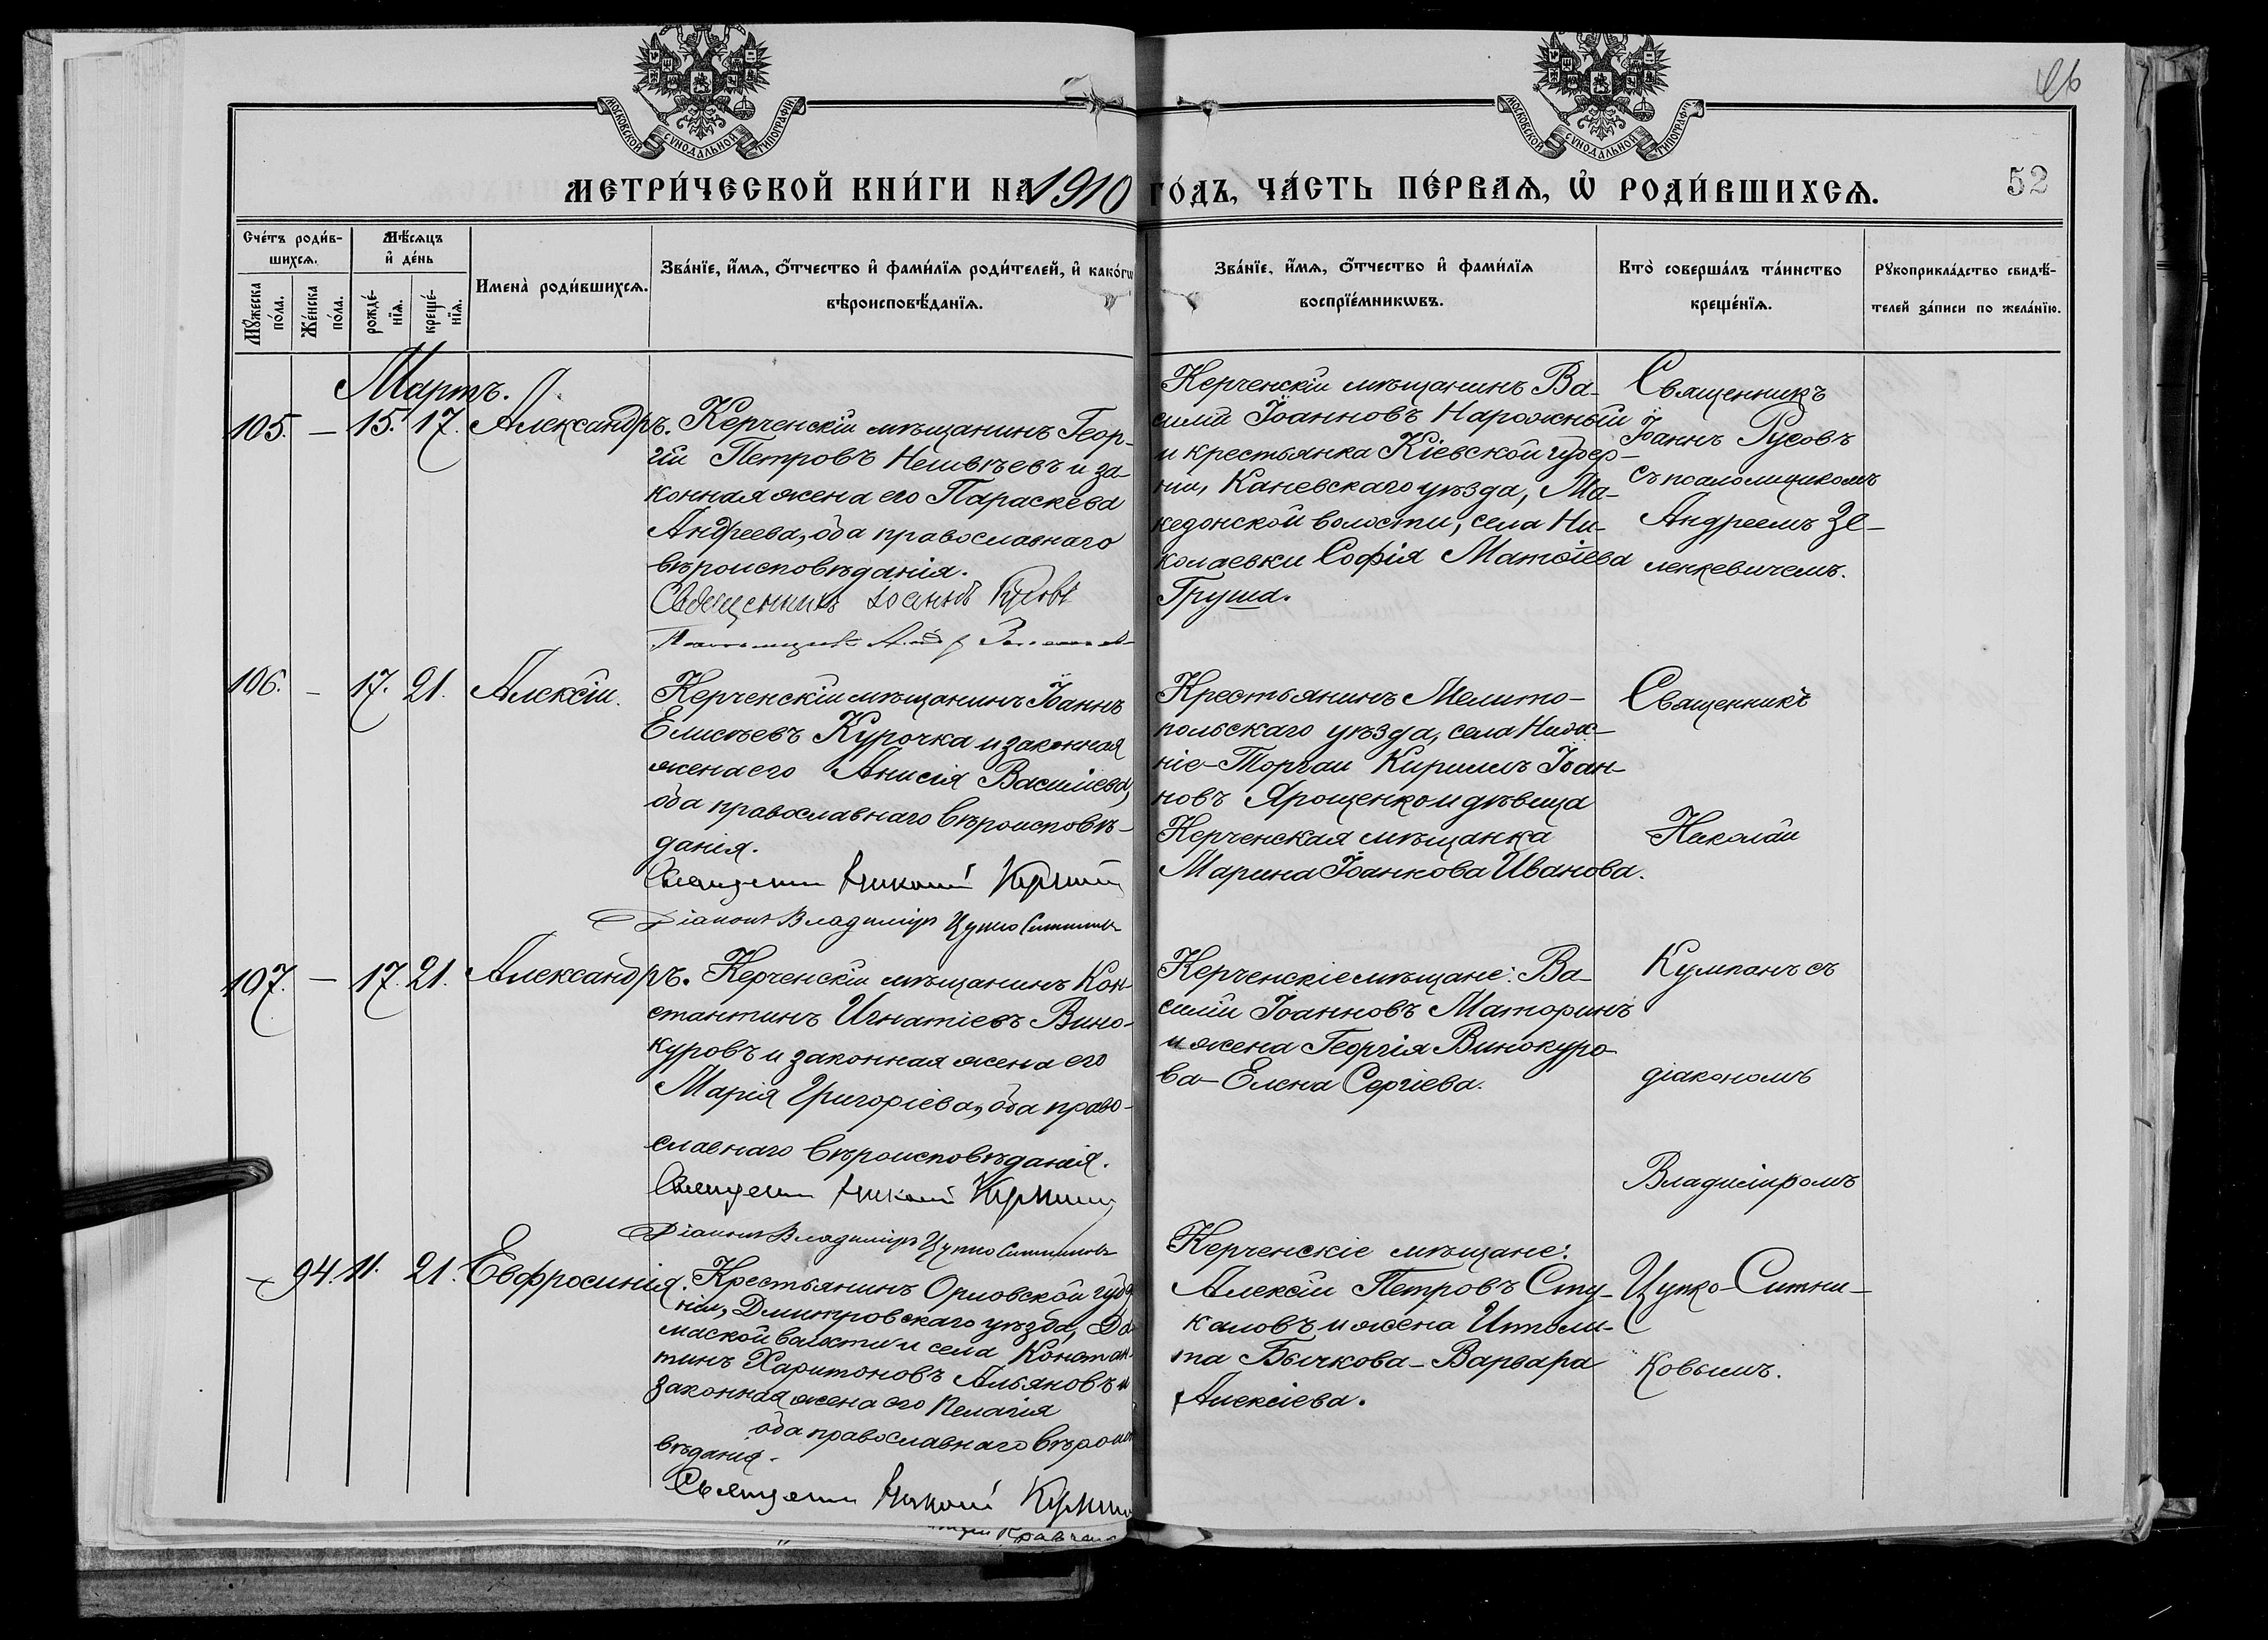 МОСКОВСКОЙ СѴНОДАЛЬНОЙ ТИПОГРАФІИ
МОСКОВСКОЙ СѴНОДАЛЬНОЙ ТИПОГРАФІИ
46
52
МЕТРИ́ЧЕСКОЙ КНИ́ГИ НА 1910 ГО́ДЪ, ЧА́СТЬ ПЕ́РВАѦ, Ѡ҆ РОДИ́ВШИХСѦ.
Сче́тъ роди́в-
шихсѧ.
Мꙋ́жеска по́ла.
Же́нска по́ла.
Мѣ́сѧцъ
и҆ де́нь
рожде́-нїѧ.
креще́-нїѧ.
Имена̀ роди́вшихсѧ.
Зва́нїе, и҆́мѧ, ѻ҆́тчество и҆ фами́лїѧ роди́телей, и҆ како́гѡ
вѣроисповѣ́данїѧ.
Зва́нїе, и҆́мѧ, ѻ҆́тчество и҆ фами́лїѧ
воспрїе́мникѡвъ.
Кто̀ соверша́лъ та́инство
креще́нїѧ.
Рꙋкоприкла́дство свидѣ́-
телей за́писи по жела́нїю.
Мартъ.
105. — 15. 17. Александръ.
Керченскій мѣщанинъ Геор-
гій Петровъ Нешвѣевъ и за-
конная жена его Параскева
Андреева, оба православнаго
вѣроисповѣданія.
Священникъ Іоаннъ Русовъ
Керченскій мѣщанинъ Ва-
силій Іоанновъ Нарожный
и крестьянка Кіевской губер-
ніи, Каневскаго уѣзда, Ма-
кедонской волости, села Ни-
колаевки Софія Матѳіева
Груша.
Священникъ
Іоаннъ Русовъ
съ псаломщикомъ
Андреемъ Зе-
ленкевичемъ.
106. — 17. 21. Алексій.
Керченскій мѣщанинъ Іоаннъ
Елисѣевъ Курочка и законная
жена его Анисія Василіева,
оба православнаго вѣроисповѣ-
данія.
Священник Николай
Діаконъ Владиміръ Цупко Ситников
Крестьянинъ Мелито-
польскаго уѣзда, села Ниж-
ніе-Торгаи Кириллъ Іоан-
новъ Ярощенко и дѣвица
Керченская мѣщанка
Марина Іоаннова Иванова.
Священникъ
Николай
107. — 17. 21. Александръ.
Керченскій мѣщанинъ Кон-
стантинъ Игнатіевъ Вино-
куровъ и законная жена его
Марія Григоріева, оба право-
славнаго вѣроисповѣданія.
Священник Николай
Діаконъ Владиміръ Цупко Ситников
Керченскіе мѣщане: Ва-
силій Іоанновъ Маторинъ
и жена Георгія Винокуро-
ва - Елена Сергіева.
Кумпанъ съ
діакономъ
Владиміромъ
— 94. 11. 21. Евфросинія.
Крестьянинъ Орловской губер
ніи, Дмитровскаго уѣзда,
волости и села Констан-
тинъ Харитоновъ Альяновъ и
законная жена его Пелагія
оба православнаго вѣроиспо
вѣданія.
Священник Николай
Керченскіе мѣщане:
Алексій Петровъ Сту-
каловъ и жена Иппо­ли-
та Бычкова - Варвара
Алексіева.
Цупко-Ситни-
ковымъ.